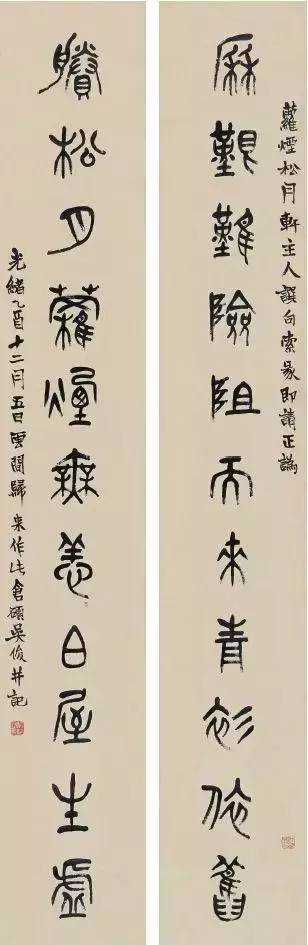 蘿煙松月軒主人譔句索篆即請正譌
厤艱難險阻而來青衫依舊
賸松月蘿煙無恙白屋生虛
光緒乙酉十二月五日雲間歸來作此倉碩吳俊并記